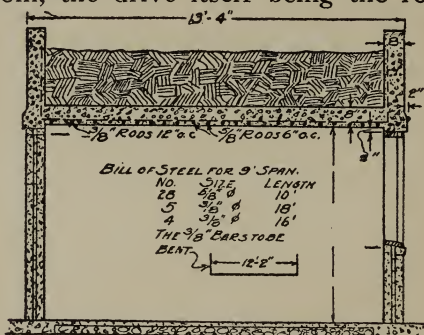 the drive itself being the
13'-4"
8"
2"
8"
3/8" RODS 12" o.c. 5/8" RODS 6" o.c.
BILL OF STEEL FOR 9' SPAN.
NO. SIZE LENGTH
28 5/8" ϕ 10'
5 3/8" ϕ 18'
4 3/8" ϕ 16'
THE 3/8" BARS TO BE
BENT
12'-2"